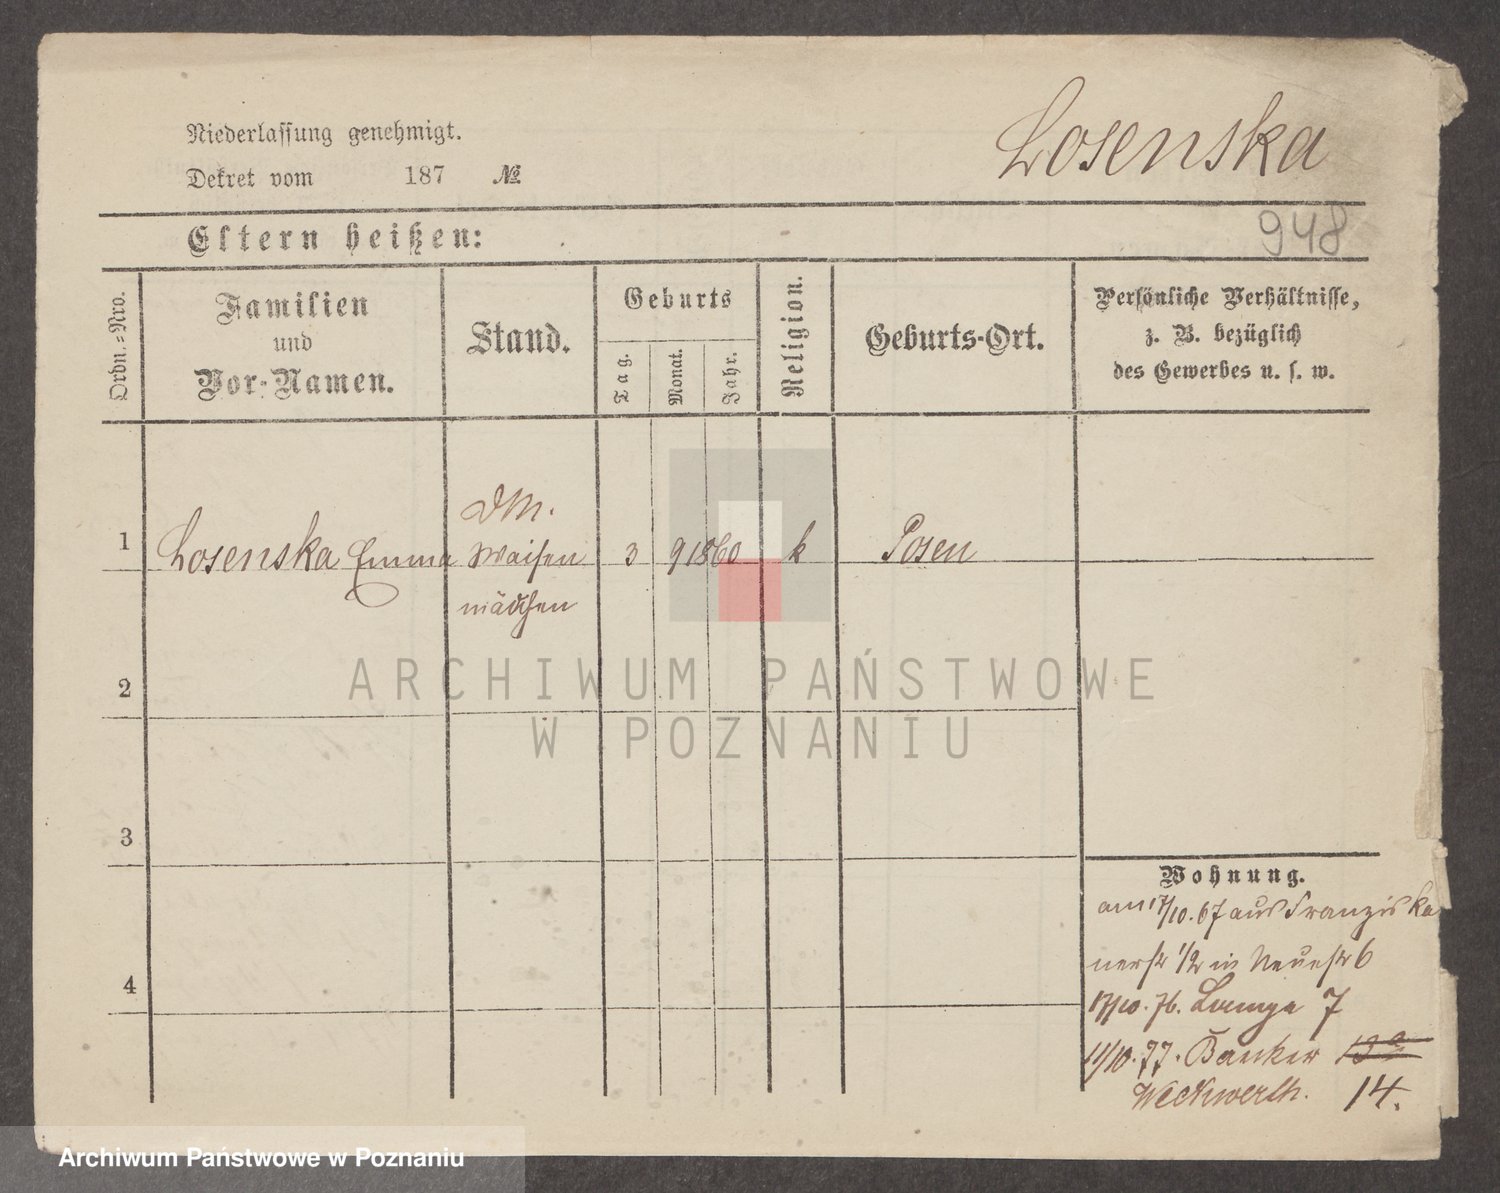 Niederlassung genehmigt.
Losenska
Dekret vom 187 №
948
Eltern heißen:
Ordn.-Nro.
Familien
und
Vor-Namen.
Stand.
Geburts
Tag.
Monat.
Jahr.
Religion.
Geburts-Ort.
Persönliche Verhältnisse,
z. B. bezüglich
des Gewerbes u. s. w.
DM.
1 Losenska Emma Waisen 3 9 1860 k Posen
mädchen
2
3
4
Wohnung.
am 17/10. 67 aus Franziska
nerstr 1/2 in Neuestr 6
17/10. 76. Lange 7
11/10. 77. Bäcker
Weckwerth. 14.
ARCHIWUM PAŃSTWOWE
W POZNANIU
Archiwum Państwowe w Poznaniu